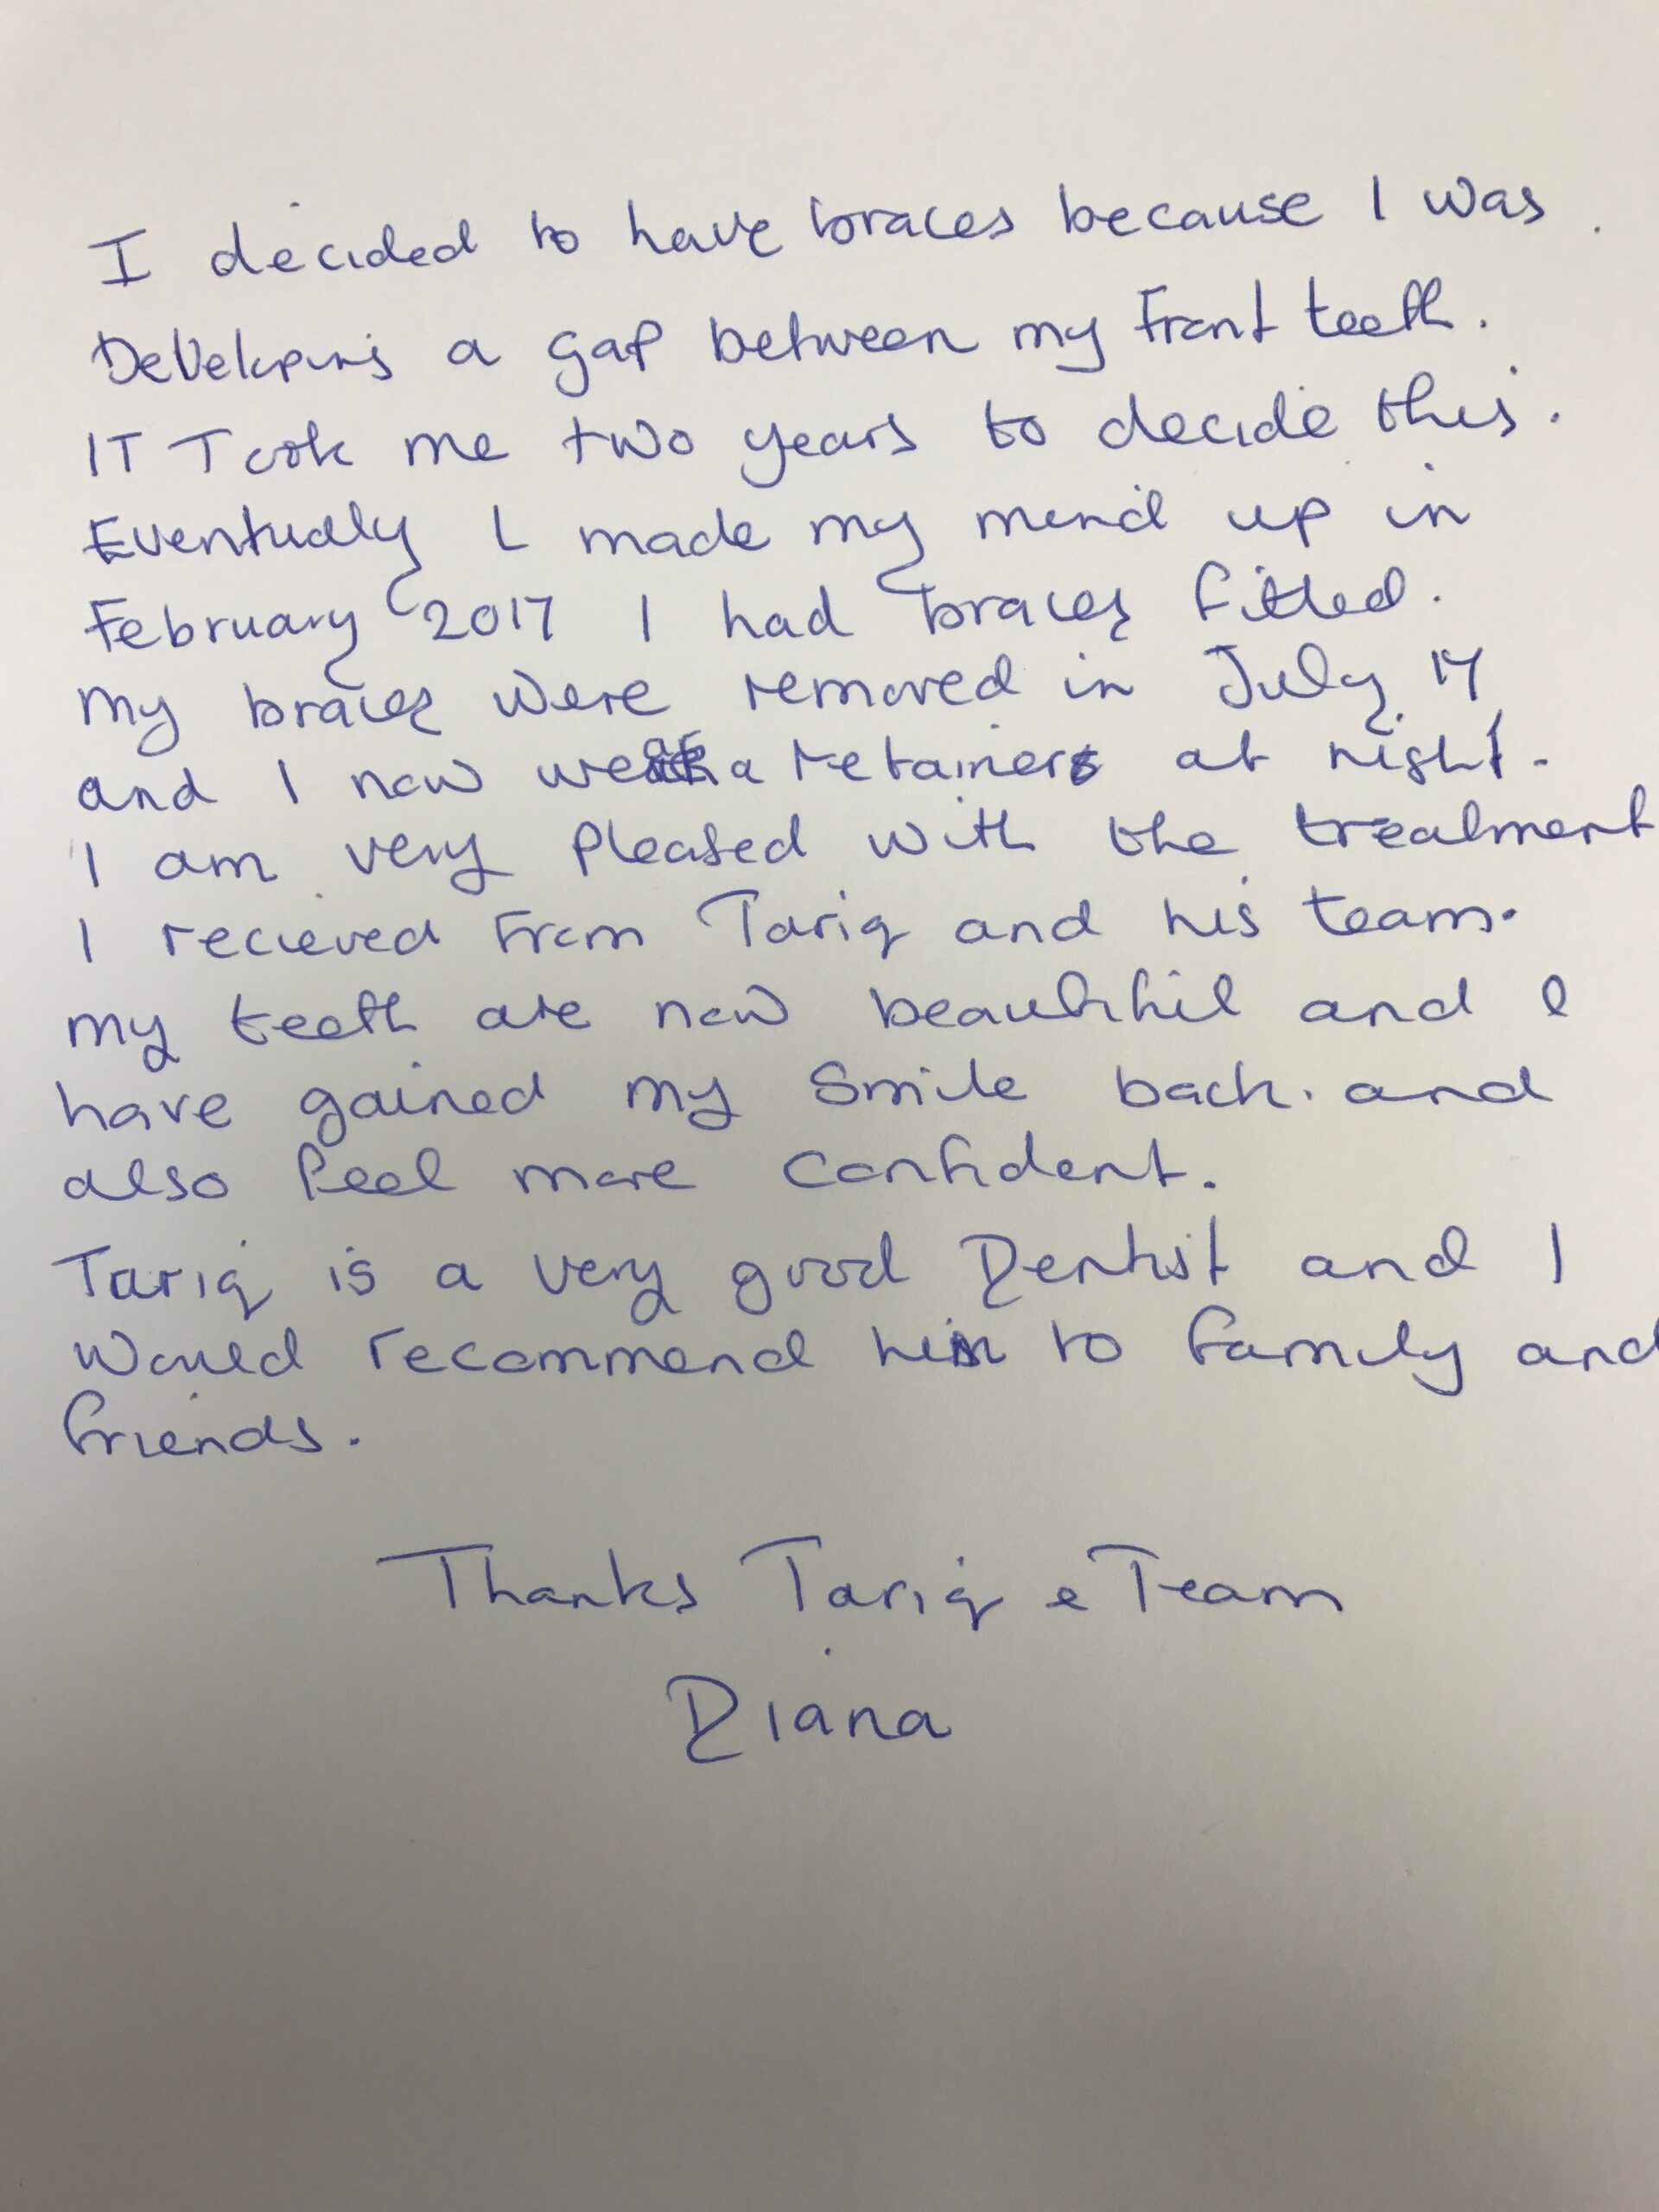 I decided to have braces because I was
Developing a gap between my Front teeth.
IT Took me two years to decide this.
Eventually I made my mind up in
February 2017 I had braces fitted.
My braces were removed in July 17
and I now wear a retainer at night.
I am very Pleased with the treatment
I recieved From Tariq and his team.
My teeth are now beautiful and I
have gained my Smile back. and
also feel more Confident.
Tariq is a very good Dentist and I
Would recommend him to family and
friends.
Thanks Tariq & Team
Diana